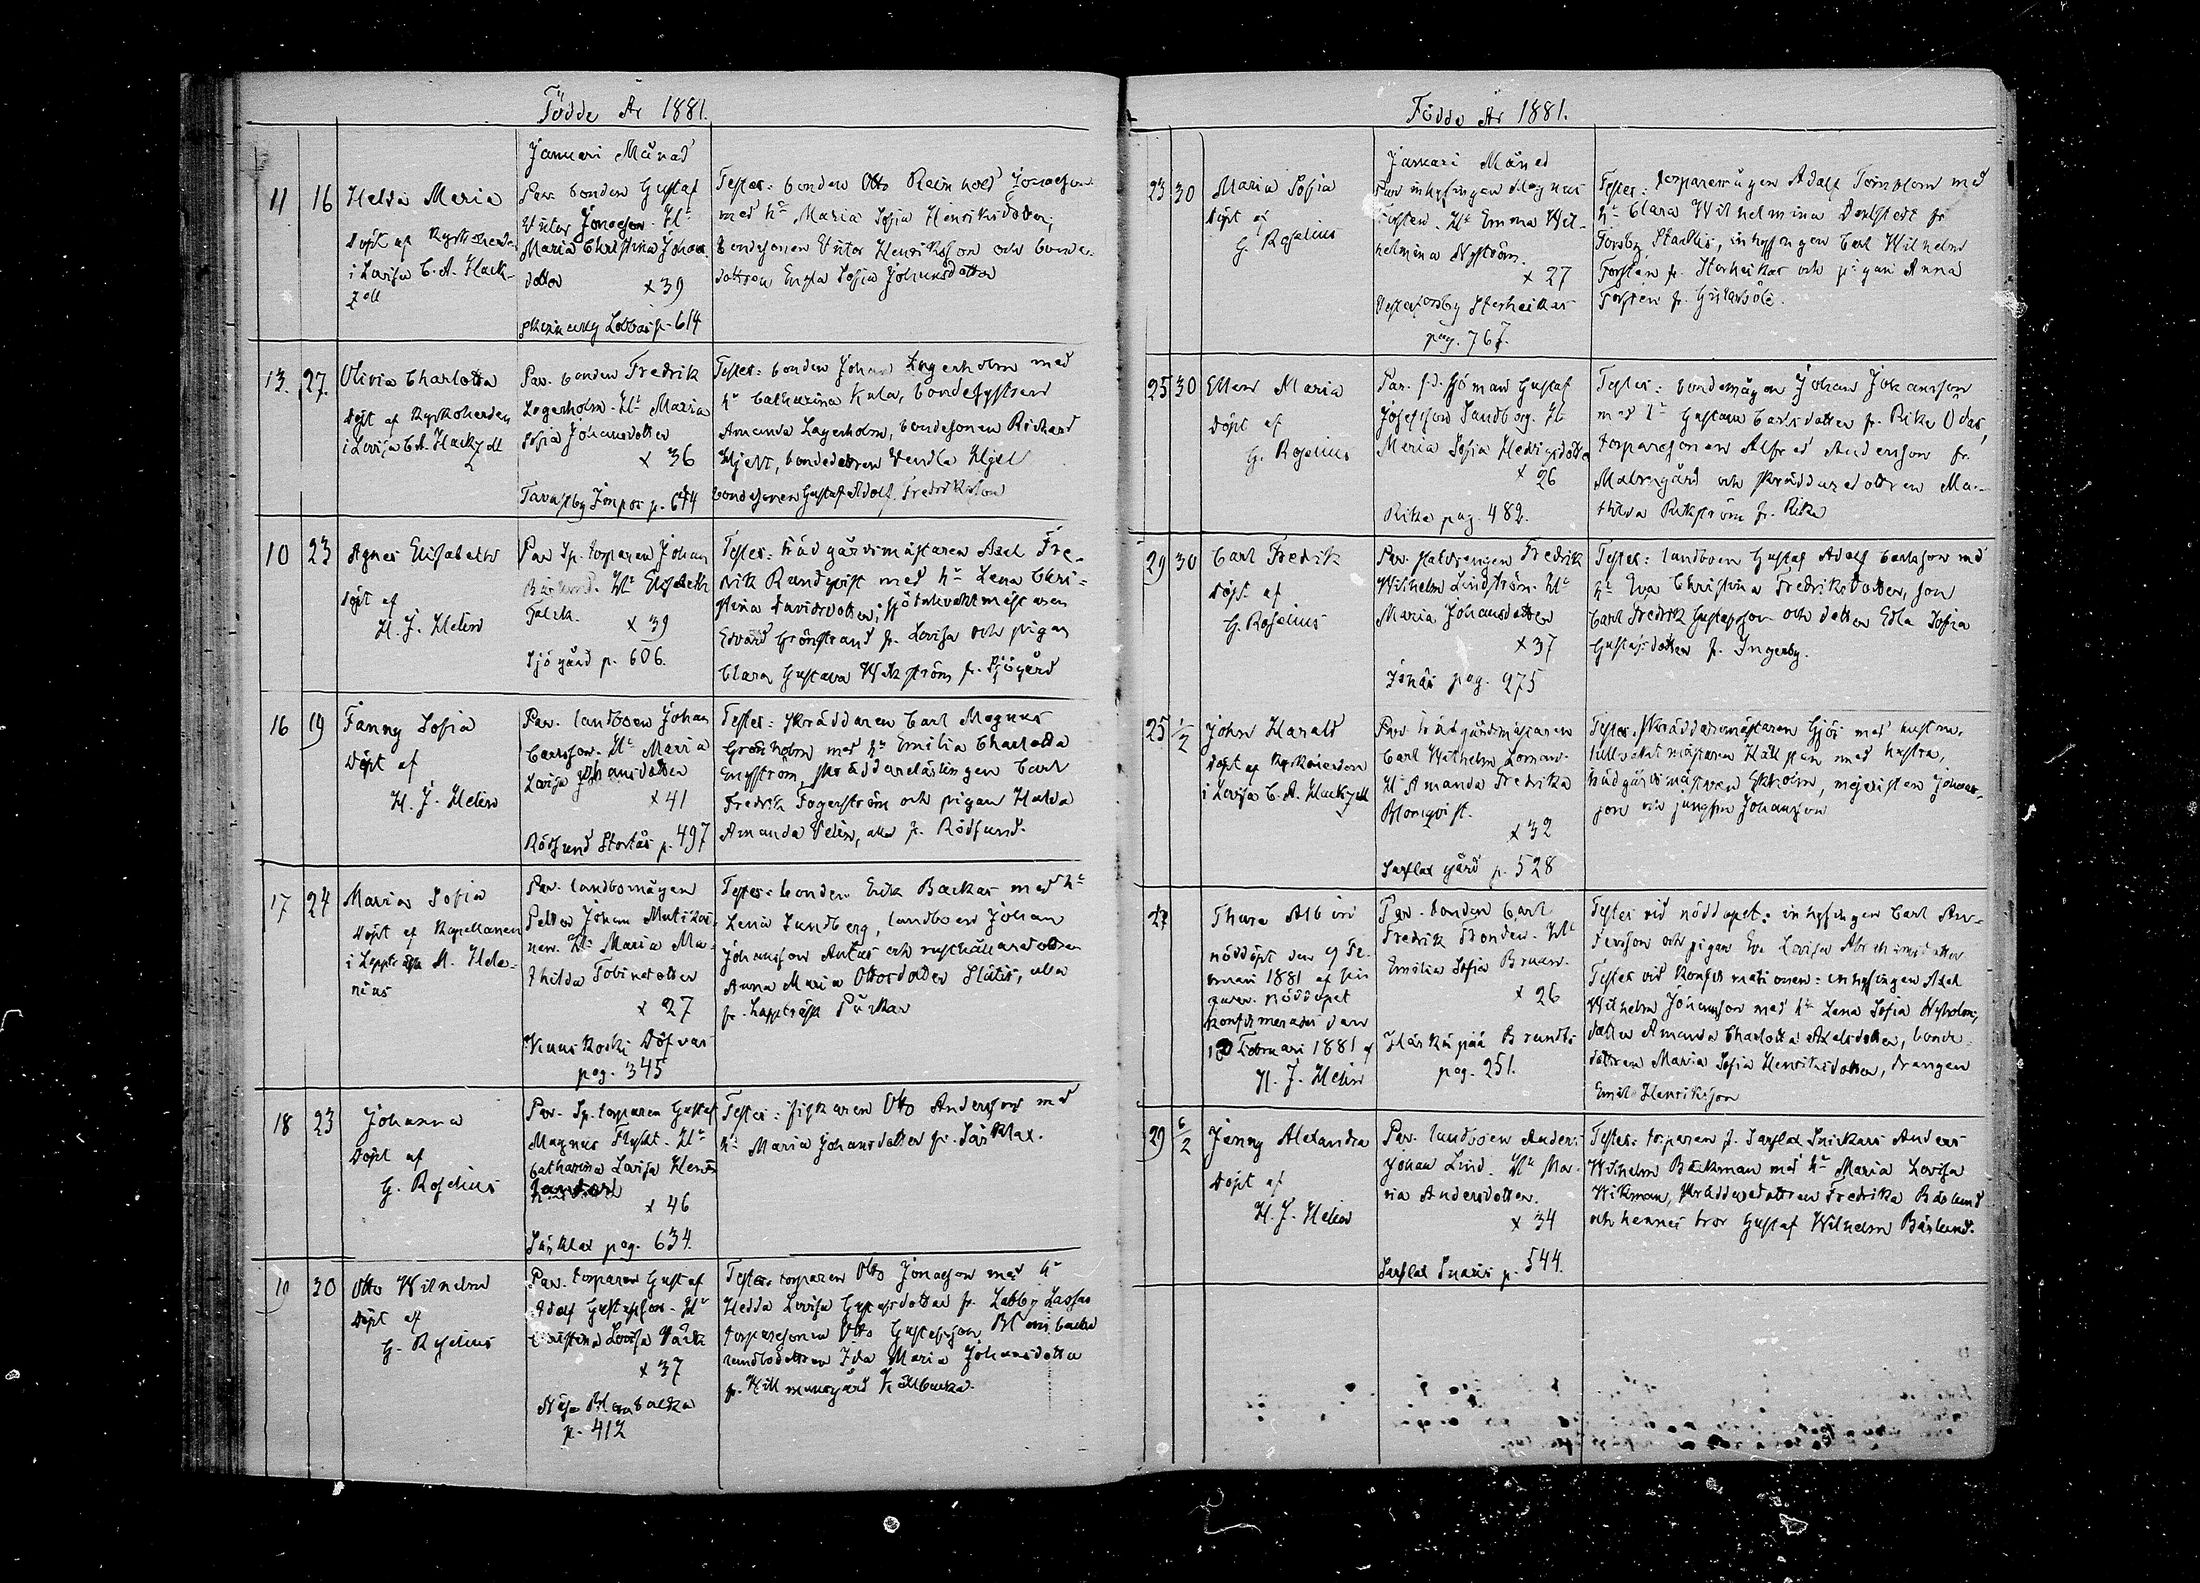 Födde År 1881.
Januari Månad
11 16 Helda Maria
Döpt af Kyrkoherden
i Lovisa C. A. Hack-
zell
Par. bonden Gustaf
Victor Jonasson. Hu
Maria Christina Johans
dotter
x 39
Skinnarby Lobbas p. 614
Testes: bonden Otto Reinhold Jonasson
med hu Maria Sofia Henriksdotter,
bondesonen Victor Henriksson och bonde-
dottren Eugla Sofia Johansdotter
13. 27. Olivia Charlotta
Döpt af Kyrkoherden
i Lovisa C.A. Hackzell
Par. bonden Fredrik
Lagerholm. Hu Maria
Sofia Johansdotter
x 36
Tavastby p. 644
Testes: bonden Johan Lagerholm med
hu Catharina Kula, bondesystren
Amanda Lagerholm, bondesonen Richard
Hjelt, bondedottren Vendla Hjelt
bondesonen Gustaf Adolf Fredriksson
10 23 Agnes Elisabeth
Döpt af
H. J. Helin
Par Sp. torparen Johan
Bäcklund. Hu Elisabeth
Falck.
x 39
Sjögård p. 606.
Testes: trädgårdsmästaren Axel Fre-
drik Rundqvist med hu Lena Chri-
stina Davidsdotter, sjötullvaktmästaren
Edvard Grönstrand fr. Lovisa och pigan
Clara Gustava Wikström fr. Sjögård
16 19 Fanny Sofia
Döpt af
H. J. Helin
Par. landboen Johan
Carlsson. Hu Maria
Lovisa Johansdotter
x 41
Rödsund Storkas p. 497
Testes: skräddaren Carl Magnus
Grönholm med hu Emilia Charlotta
Engström, skräddarelärlingen Carl
Fredrik Fogerström och pigan Hulda
Amanda Velin, alla fr. Rödsund.
17 24 Maria Sofia
Döpt af Kapellanen
i Lappträsk A. Hele-
nius
Par. landbomågen
Petter Johan Matikai-
nen. Hu Maria Ma-
thilda Tobiasdotter
x 27
Kuuskoski Döfvas
pag. 345
Testes: bonden Erik Backas med hu
Lena Sundberg, landboen Johan
Johansson Antas och rusthållaredottren
Anna Maria Ottosdotter Slätis, alla
fr. Lappträsk Pürkar
18 23 Johanna
Döpt af
G. Roselius
Par. Sp. torparen Gustaf
Magnus Flykt. Hu
Catharina Lovisa Henriks
x 46
Särklax pag. 634.
Testes: fiskaren Otto Andersson med
hu Maria Johansdotter fr. Särklax.
19 30 Otto Wilhelm
Döpt af
G. Roselius
Par. torparen Gustaf
Adolf Gustafsson. Hu
Christina Lovisa Värk
x 37
Näse Blombacka
p. 412
Testes: torparen Otto Jonasson med hu
Hedda Lovisa Gustafsdotter fr. Labby Lassas
torparesonen Otto Gustafsson Blombacka
landbodottren Ida Maria Johansdotter
fr. Hillmansgård Källbacka.
Födde År 1881.
Januari Månad
23 30 Maria Sofia
Döpt af
G. Roselius
Par inhysingen Magnus
Forsten. Hu Emma Wil-
helmina Nyström.
x 27
Storheikas
pag. 767.
Testes: torparemågen Adolf Törnblom med
hu Clara Wilhelmina Dahlstedt fr.
Forsby Starkis, inhysingen Carl Wilhelm
Forsten fr. Storheikas och pigan Anna
Forsten fr. Gislarböle.
25 30 Ellen Maria
Döpt af
G. Roselius
Par. f.d. sjöman Gustaf
Josefsson Sandborg. Hu
Maria Sofia Hedvigsdotter
x 26
Rike pag. 482.
Testes: bondemågen Johan Johansson
med hu Gustava Carlsdotter fr. Rike Odas,
torparesonen Alfred Andersson fr.
Malmgård och skräddaredottren Ma-
thilda Rikström fr. Rike
29 30 Carl Fredrik
Döpt af
G. Roselius
Par. Statdrengen Fredrik
Wilhelm Lindström. Hu
Maria Johansdotter
x 37
Isnäs pag. 275
Testes: landboen Gustaf Adolf Carlsson med
hu Eva Christina Fredriksdotter, son
Carl Fredrik Gustafsson och dotter Edla Sofia
Gustafsdotter fr. Ingerby.
25 1/2 John Harald
Döpt af Kyrkoherden
i Lovisa C. A. Hackzell
Par trädgårdsmästaren
Carl Wilhelm Loman.
Hu Amanda Fredrika
Blomqvist.
x 32
Sarflax gård p. 528
Testes. Skräddaremästaren Gjös med hustru,
tullvaktmästaren Hällsten med hustru,
trädgårdsmästaren Ekholm, mejeristen Johans-
son och jungfru Johansson
27 Thure Albin
nöddöpt den 9 Fe-
bruari 1881 af
nöddopet
konfirmerades den
10 Februari 1881 af
H. J. Helin
Par. bonden Carl
Fredrik Bonden. Hu
Emilia Sofia Bruun.
x 26
Härkäpää Brendts
pag. 251.
Testes vid nöddopet: inhysingen Carl An-
dersson och pigan Eva Lovisa Abrahamsdotter
Testes vid Konfirmationen: inhysingen Axel
Wilhelm Johansson med hu Lena Sofia Nyholm,
dotter Amanda Charlotta Axelsdotter, bonde-
dottren Maria Sofia Henriksdotter, drengen
Emil Henriksson
29 6/2 Jenny Alexandra
Döpt af
H. J. Helin
Par. landboen Anders
Johan Lind. Hu Ma-
ria Andersdotter.
x 34
Sarflax Snaris p. 544.
Testes: torparen fr. Sarflax Snickars Anders
Wilhelm Bäckman med hu Maria Lovisa
Wikman, skräddaredottren Fredrika Bäslund
och hennes bror Gustaf Wilhelm Bäslund.